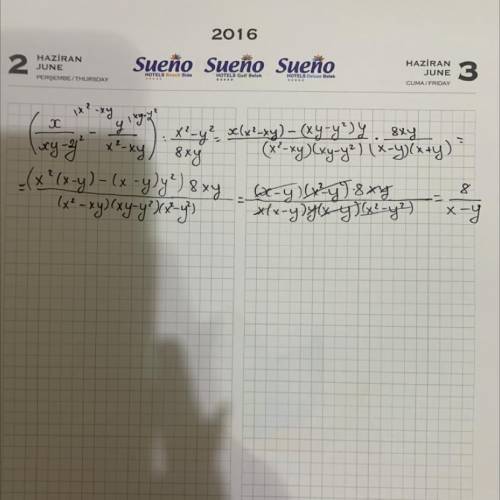 2016
2 HAZİRAN JUNE PERŞEMBE / THURSDAY
Sueño HOTELS Beach Side
Sueño HOTELS Golf Belek
Sueño HOTELS Deluxe Belek
HAZİRAN JUNE CUMA / FRIDAY 3
(x/(xy-y²) ^{|x²-xy} - y/(x²-xy) ^{|xy-y²}) : (x²-y²)/(8xy) = (x(x²-xy)-(xy-y²)y)/((x²-xy)(xy-y²)) · 8xy/((x-y)(x+y)) =
= ((x²(x-y)-(x-y)y²)8xy)/((x²-xy)(xy-y²)(x²-y²)) = ((x-y)(x²-y²)·8xy)/(x(x-y)y(x-y)(x²-y²)) = 8/(x-y)